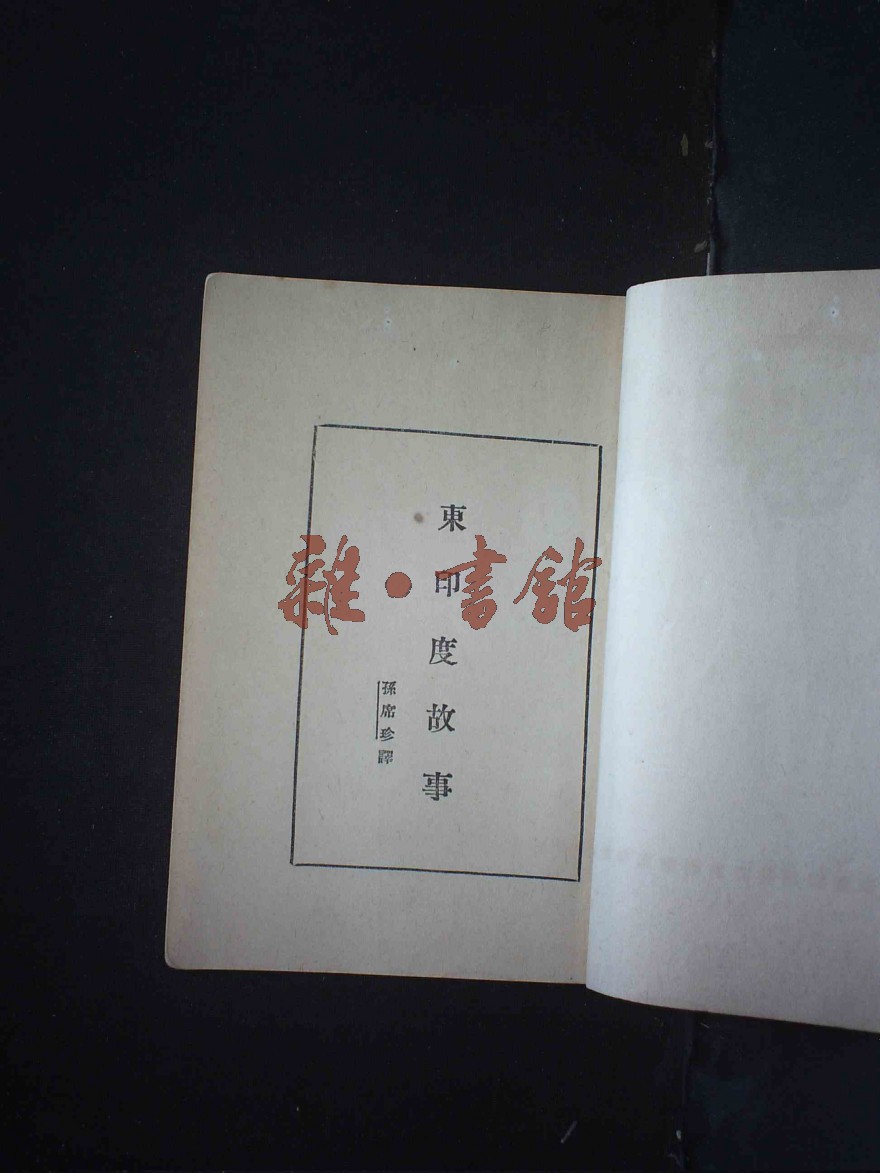 東印度故事
孫席珍譯
雜·書館